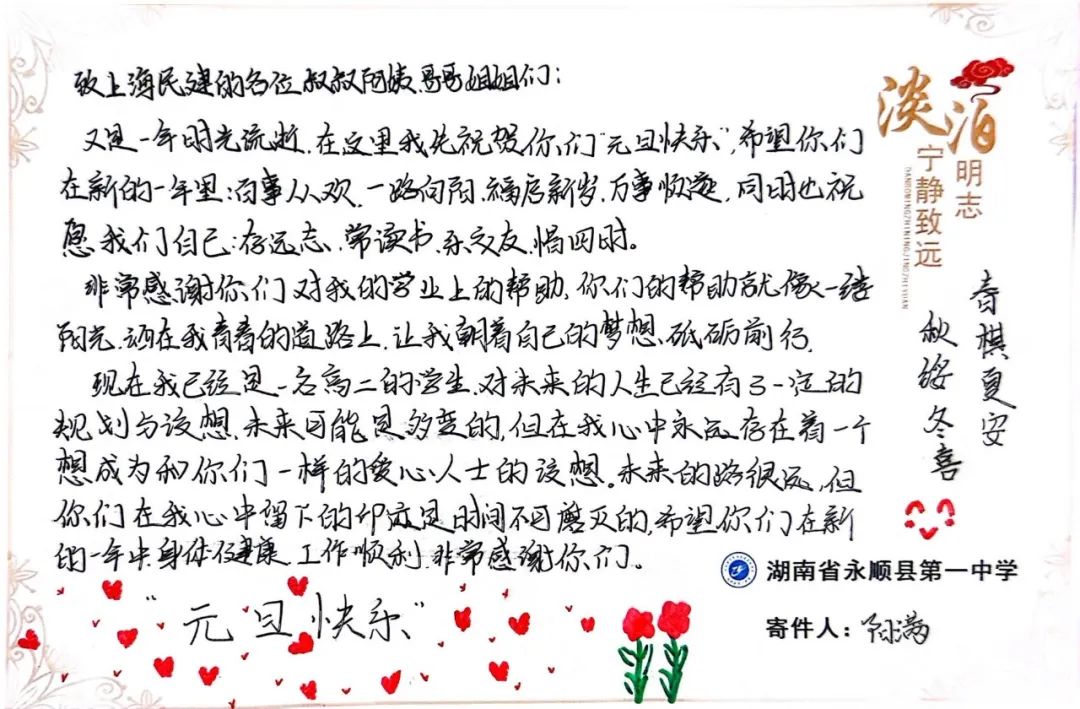 致上海民建的各位叔叔阿姨、哥哥姐姐们：
又是一年时光流逝，在这里我先祝贺你们“元旦快乐”，希望你们
在新的一年里：百事从欢，一路向阳，福启新岁，万事顺遂，同时也祝
愿我们自己：存远志、常读书、亲交友、惜四时。
非常感谢你们对我的学业上的帮助，你们的帮助就像一缕
阳光，洒在我青春的道路上，让我朝着自己的梦想，砥砺前行，
现在我已经是一名高二的学生，对未来的人生已经有了一定的
规划与设想，未来可能是多变的，但在我心中永远存在着一个
想成为和你们一样的爱心人士的设想。未来的路很远，但
你们在我心中留下的印迹是时间不可磨灭的，希望你们在新
的一年中，身体健康，工作顺利，非常感谢你们。
“元旦快乐”
淡泊
明志
宁静致远
DANBOMINGZHININGJINGZHIYUAN
春祺夏安
秋绥冬喜
湖南省永顺县第一中学
寄件人：阳满